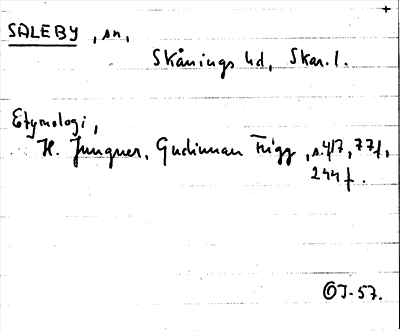 SALEBY, sn,
Skånings hd, Skar. l.
Etymologi,
H. Jungner, Gudinnan Frigg, s. 417, 77f,
244 f.
OJ-57.